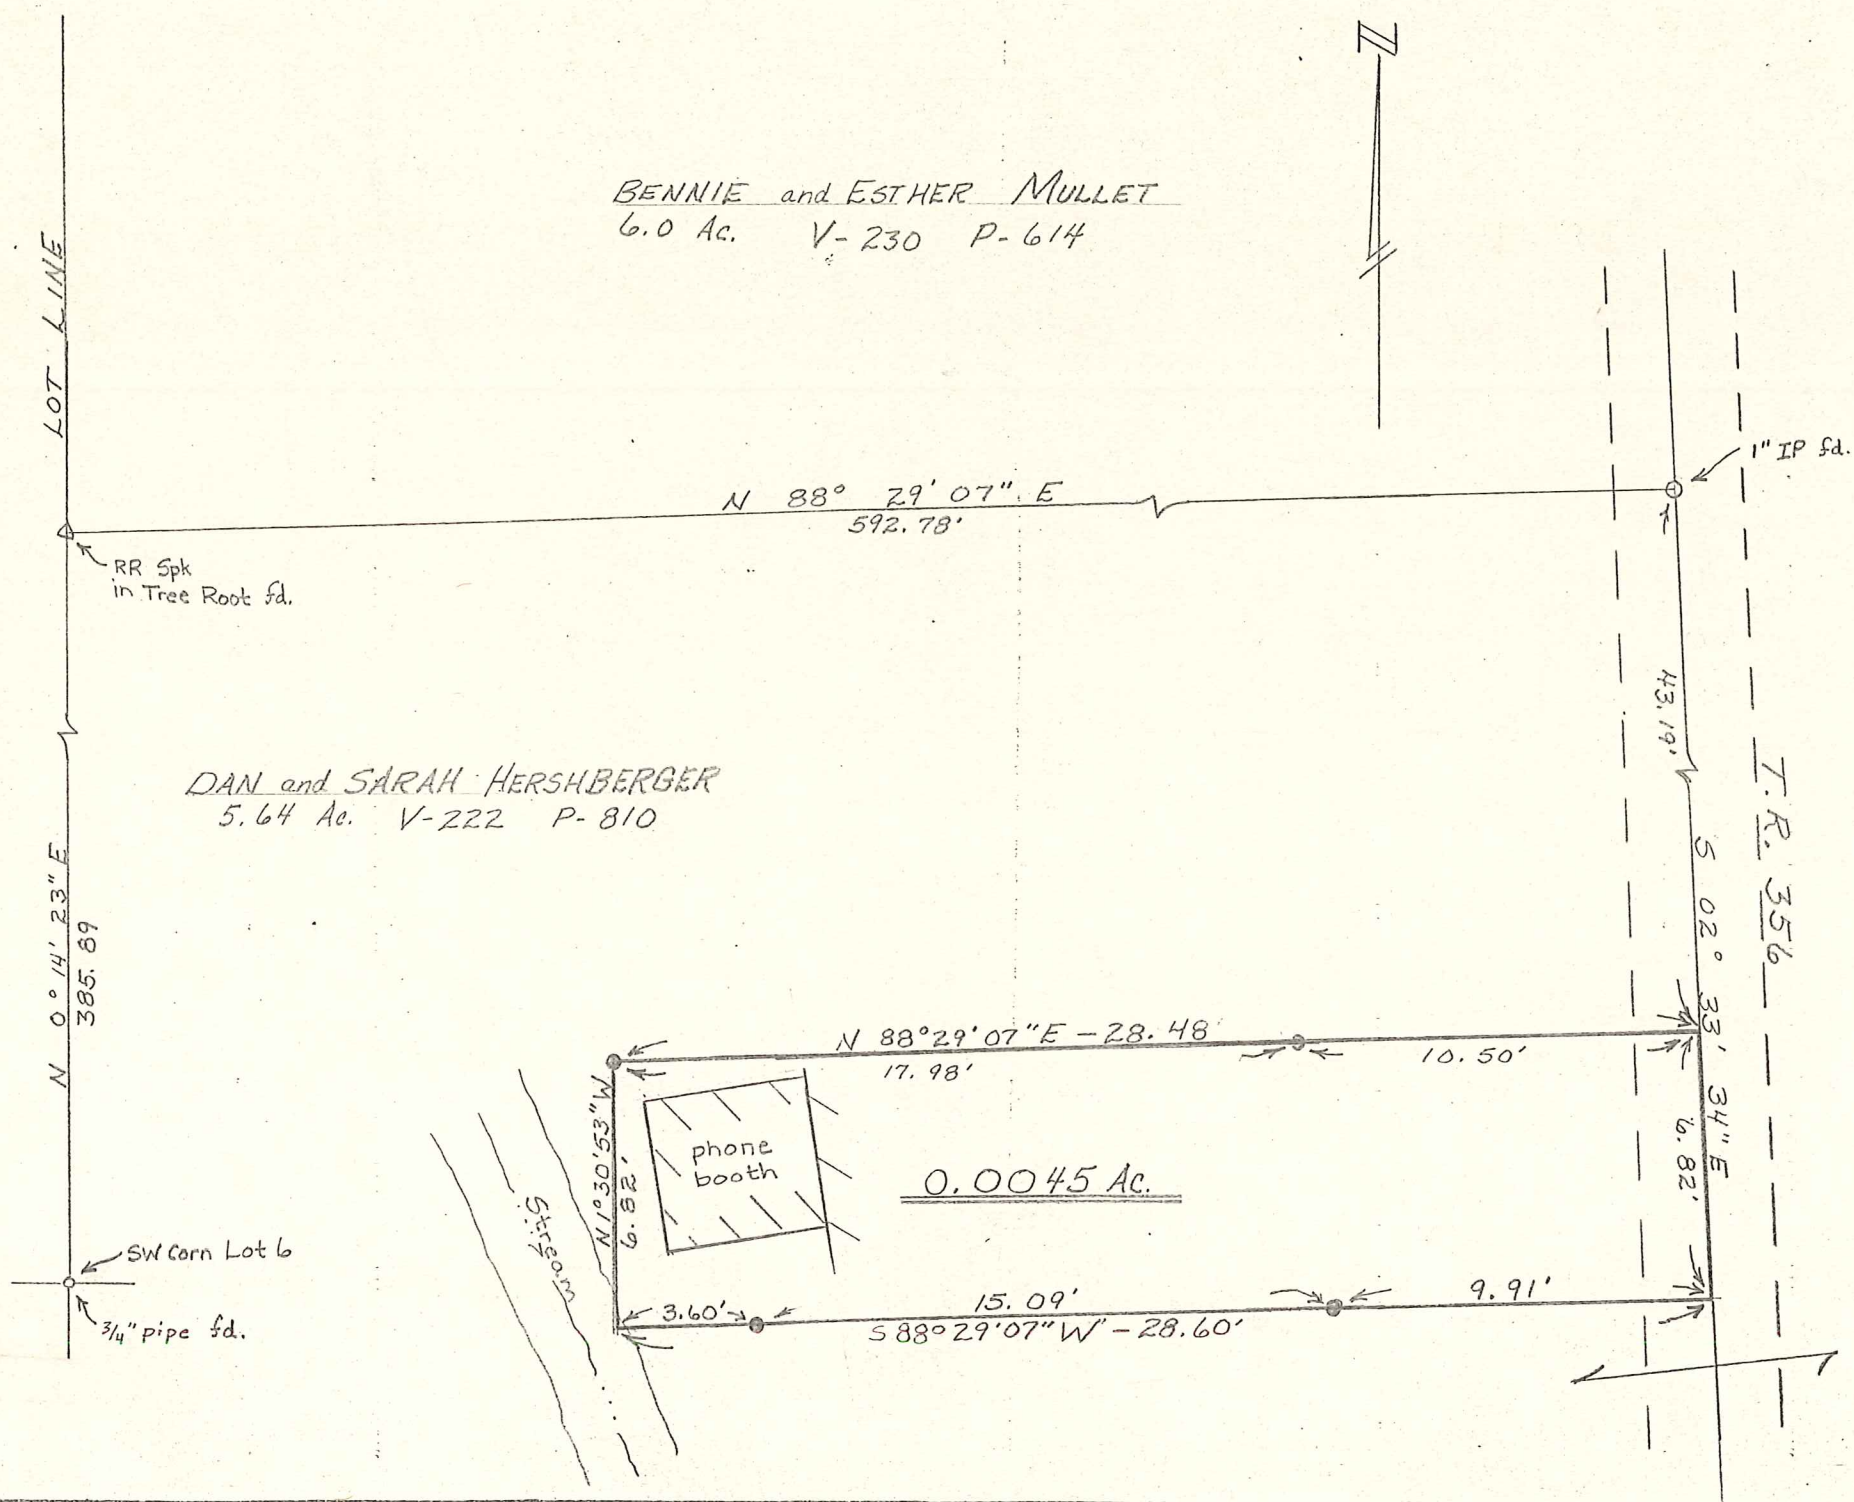 N
BENNIE and ESTHER MULLET
6.0 Ac. V-230 P-614
LOT LINE
1" IP fd.
N 88° 29' 07" E
592.78'
RR Spk
in Tree Root fd.
43.19'
T.R. 356
DAN and SARAH HERSHBERGER
5.64 Ac. V-222 P-810
N 0° 14' 23" E
385.89
S 02° 33' 34" E
6.82'
N 88°29'07"E - 28.48
17.98'
10.50'
N 1°30'53" W
6.82'
phone
booth
0.0045 Ac.
Stream
SW Corn Lot 6
3/4" pipe fd.
3.60'
15.09'
9.91'
S 88°29'07" W - 28.60'